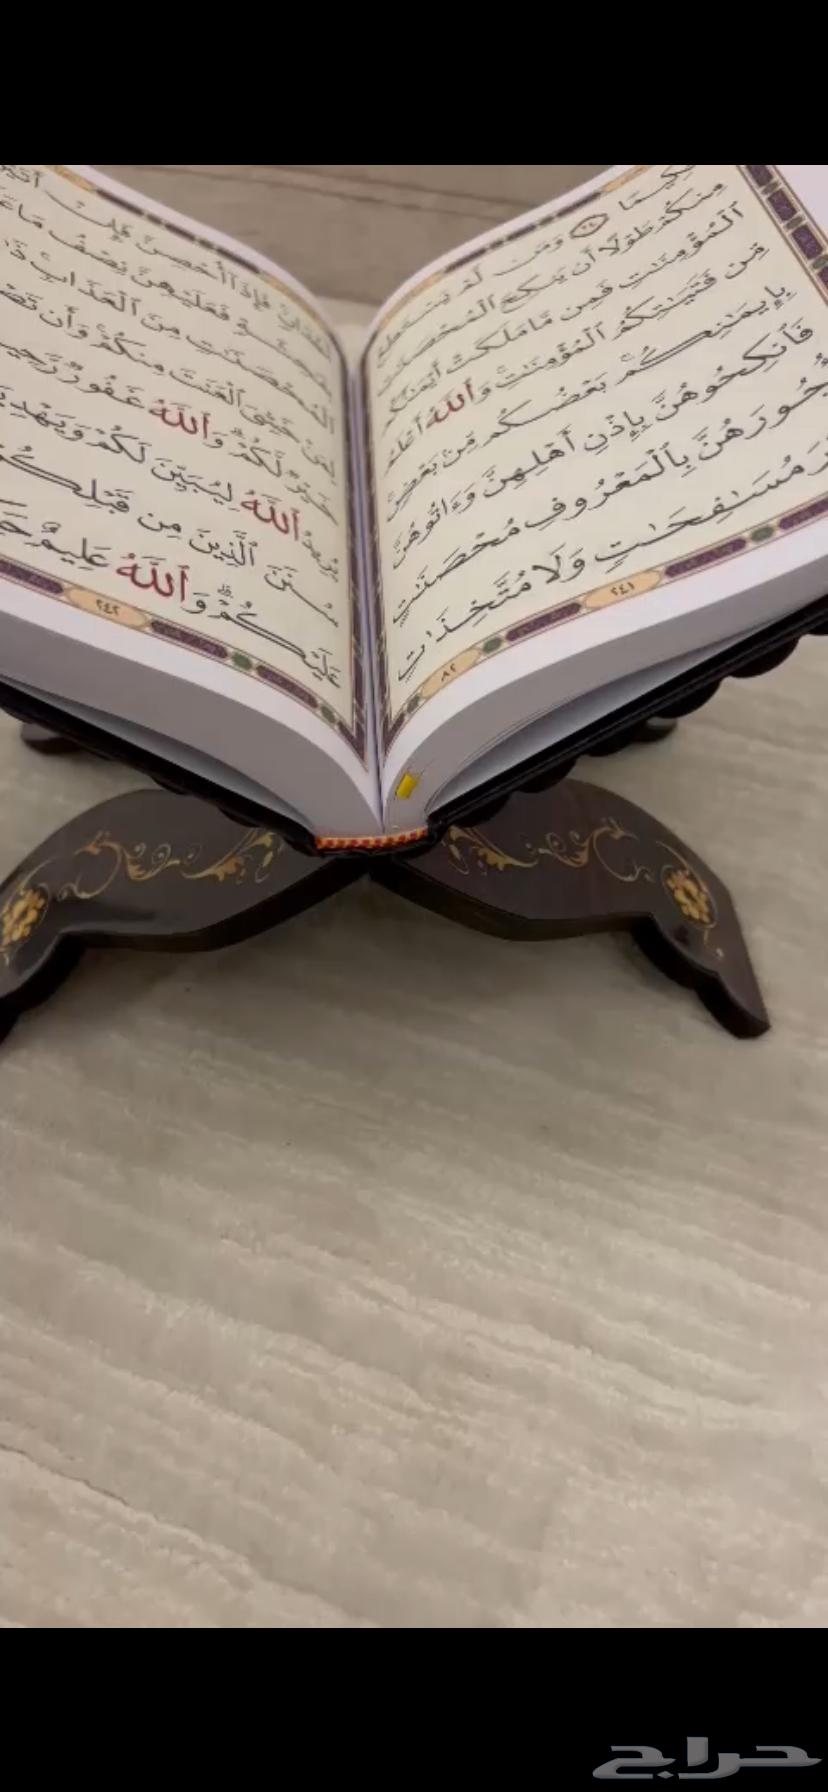 كِيمًا ٢٤ وَمَن لَّمْ يَسْتَطِعْ
مِنكُمْ طَوْلًا أَن يَنكِحَ الْمُحْصَنَٰتِ
الْمُؤْمِنَٰتِ فَمِن مَّا مَلَكَتْ أَيْمَٰنُكُم
مِّن فَتَيَٰتِكُمُ الْمُؤْمِنَٰتِ وَاللَّهُ أَعْلَمُ
بِإِيمَٰنِكُم بَعْضُكُم مِّن بَعْضٍ
فَانكِحُوهُنَّ بِإِذْنِ أَهْلِهِنَّ وَءَاتُوهُنَّ
أُجُورَهُنَّ بِالْمَعْرُوفِ مُحْصَنَٰتٍ
مُسَٰفِحَٰتٍ وَلَا مُتَّخِذَٰتِ
٢٤١
٨٢
أَخْدَانٍ فَإِذَا أُحْصِنَّ فَإِنْ أَتَيْنَ
بِفَٰحِشَةٍ فَعَلَيْهِنَّ نِصْفُ مَا
الْمُحْصَنَٰتِ مِنَ الْعَذَابِ
لِمَنْ خَشِيَ الْعَنَتَ مِنكُمْ وَأَن
خَيْرٌ لَّكُمْ وَاللَّهُ غَفُورٌ رَّحِيمٌ
يُرِيدُ اللَّهُ لِيُبَيِّنَ لَكُمْ وَيَهْدِيَ
سُنَنَ الَّذِينَ مِن قَبْلِكُمْ
عَلَيْكُمْ وَاللَّهُ عَلِيمٌ
٢٤٢
حراج